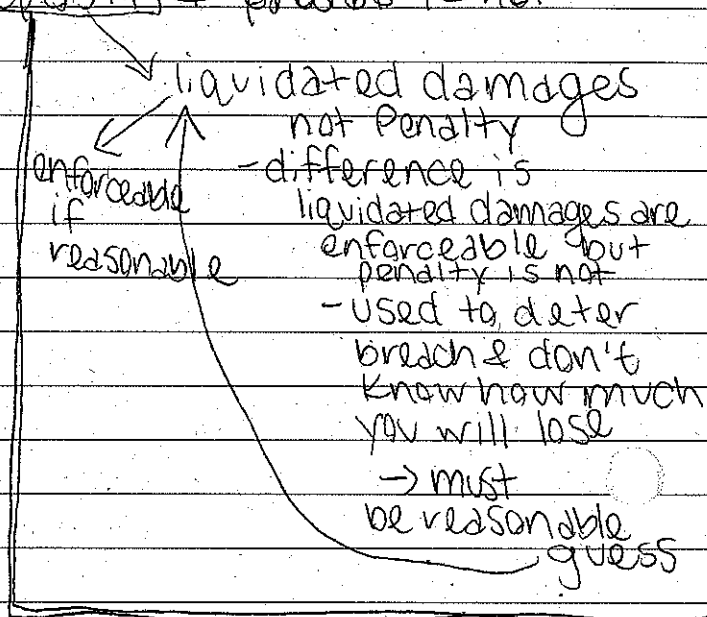 liquidated damages
not Penalty
enforceable
if
reasonable
- difference is
liquidated damages are
enforceable but
penalty is not
- used to deter
breach & don't
know how much
you will lose
→ must
be reasonable
guess